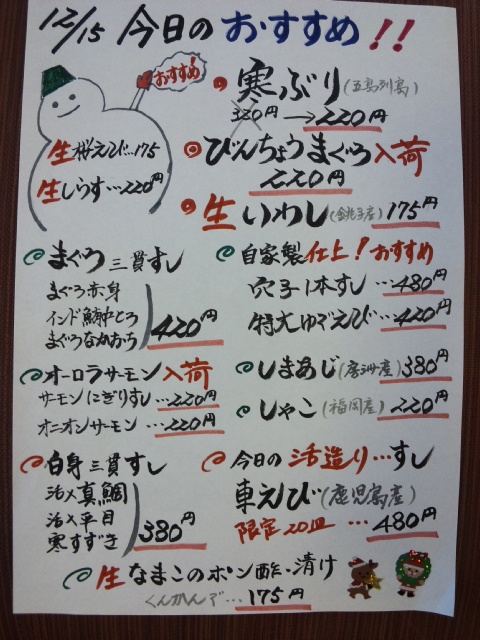 12/15 今日のおすすめ!!
おすすめ!
寒ぶり(五島列島)
320円→220円
生桜えび…175
生しらす…220円
びんちょうまぐろ入荷
220円
生いわし(銚子産)175円
まぐろ三貫すし
まぐろ赤身
インド鮪中とろ
まぐろなかおち
420円
自家製仕上!おすすめ
穴子1本すし…480円
特大ゆでえび…420円
オーロラサーモン入荷
サーモンにぎりすし…220円
オニオンサーモン…220円
しまあじ(房州産)380円
しゃこ(福岡産)220円
白身三貫すし
活〆真鯛
活〆平目
寒すずき
380円
今日の活造り…すし
車えび(鹿児島産)
限定20皿…480円
生なまこのポン酢・漬け
ぐんかんで…175円